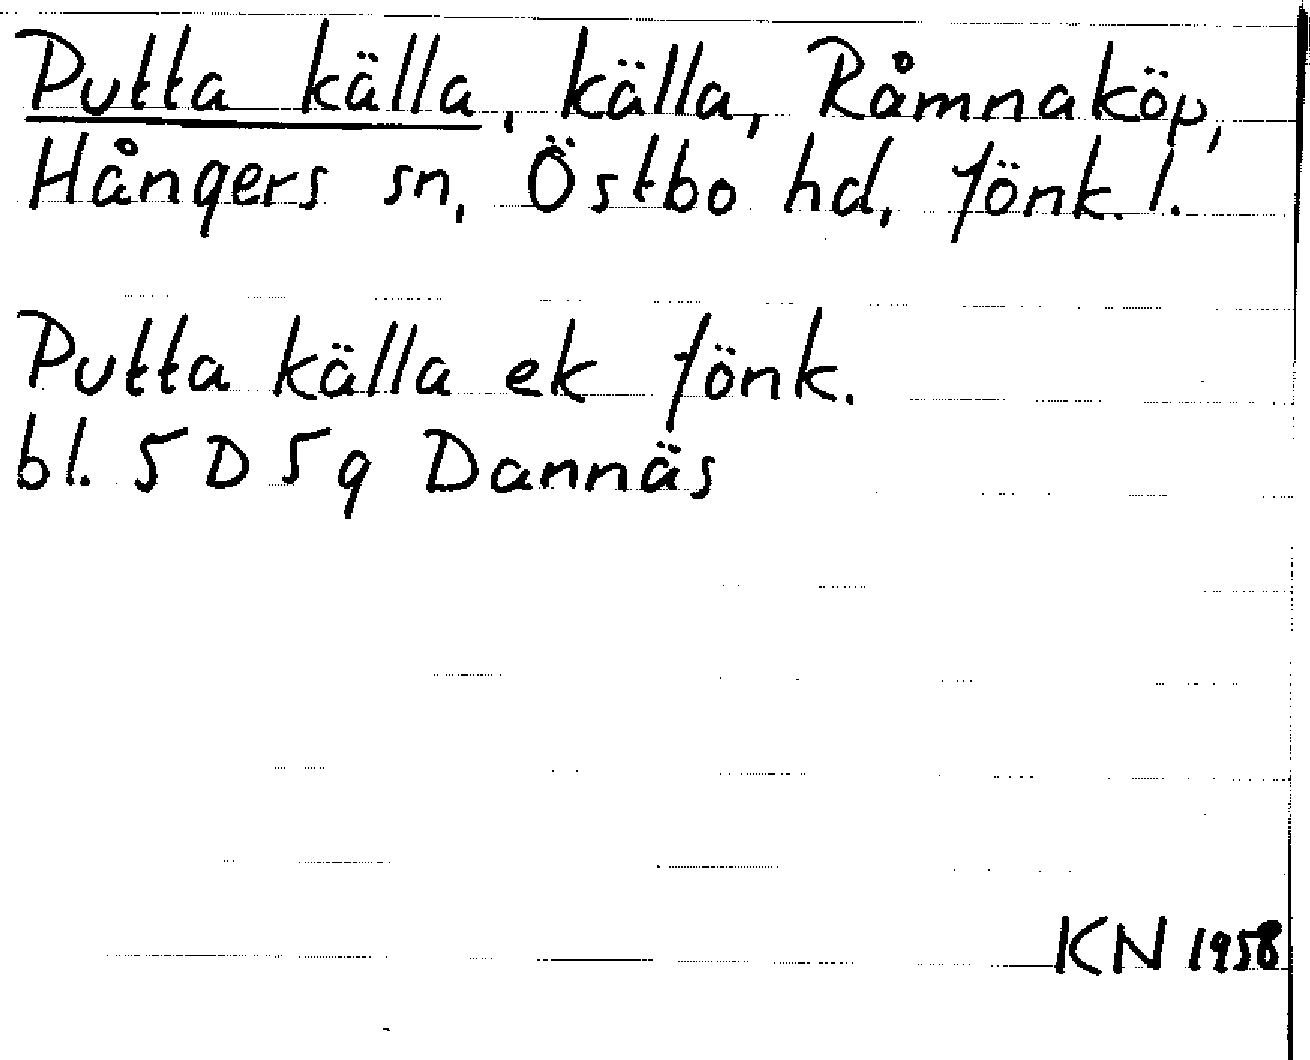 Putta källa, källa, Råmnaköp,
Hångers sn, Östbo hd, Jönk. l.
Putta källa ek Jönk.
bl. 5 D 5 g Dannäs
KN 1958